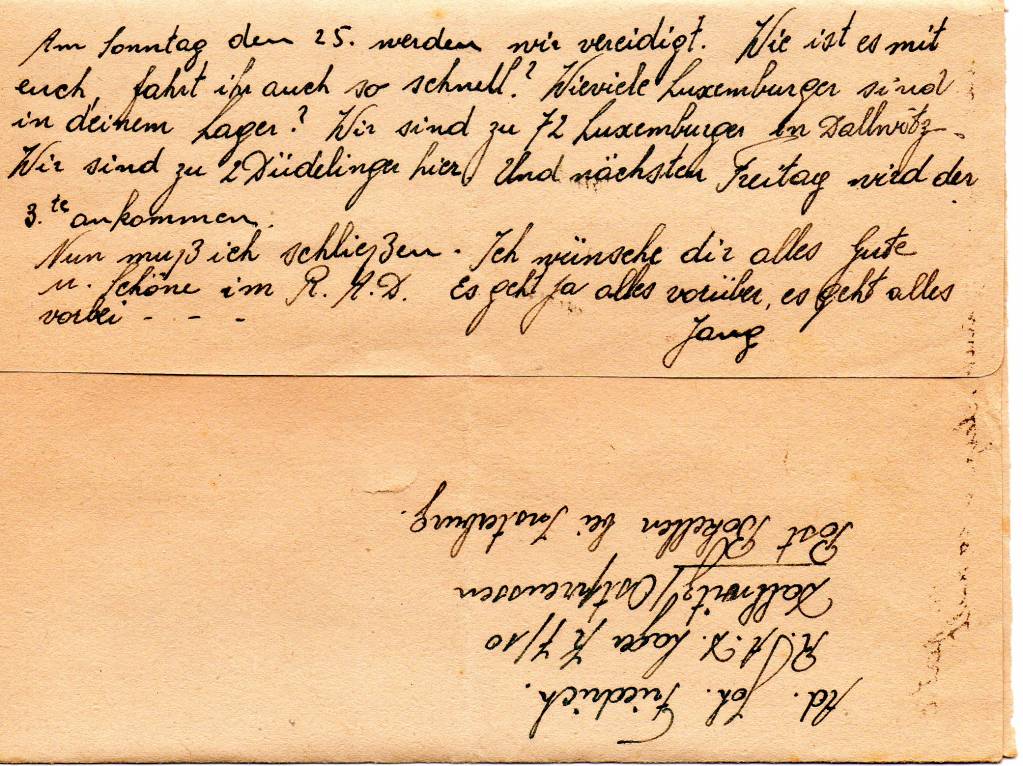 Am Sonntag den 25. werden wir vereidigt. Wie ist es mit
euch, fahrt ihr auch so schnell? Wieviele Luxemburger sind
in deinem Lager? Wir sind zu 72 Luxemburger in Dallwitz.
Wir sind zu 2 Düdelinger hier. Und nächsten Freitag wird der
3.te ankommen.
Nun muß ich schließen. Ich wünsche dir alles Gute
u. Schöne im R.A.D. Es geht ja alles vorüber, es geht alles
vorbei - - -
Jang
Ad. Joh. Friedrich.
R.A.D. Lager 7/10
Dallwitz/Ostpreussen
Post Bokellen bei Insterburg.